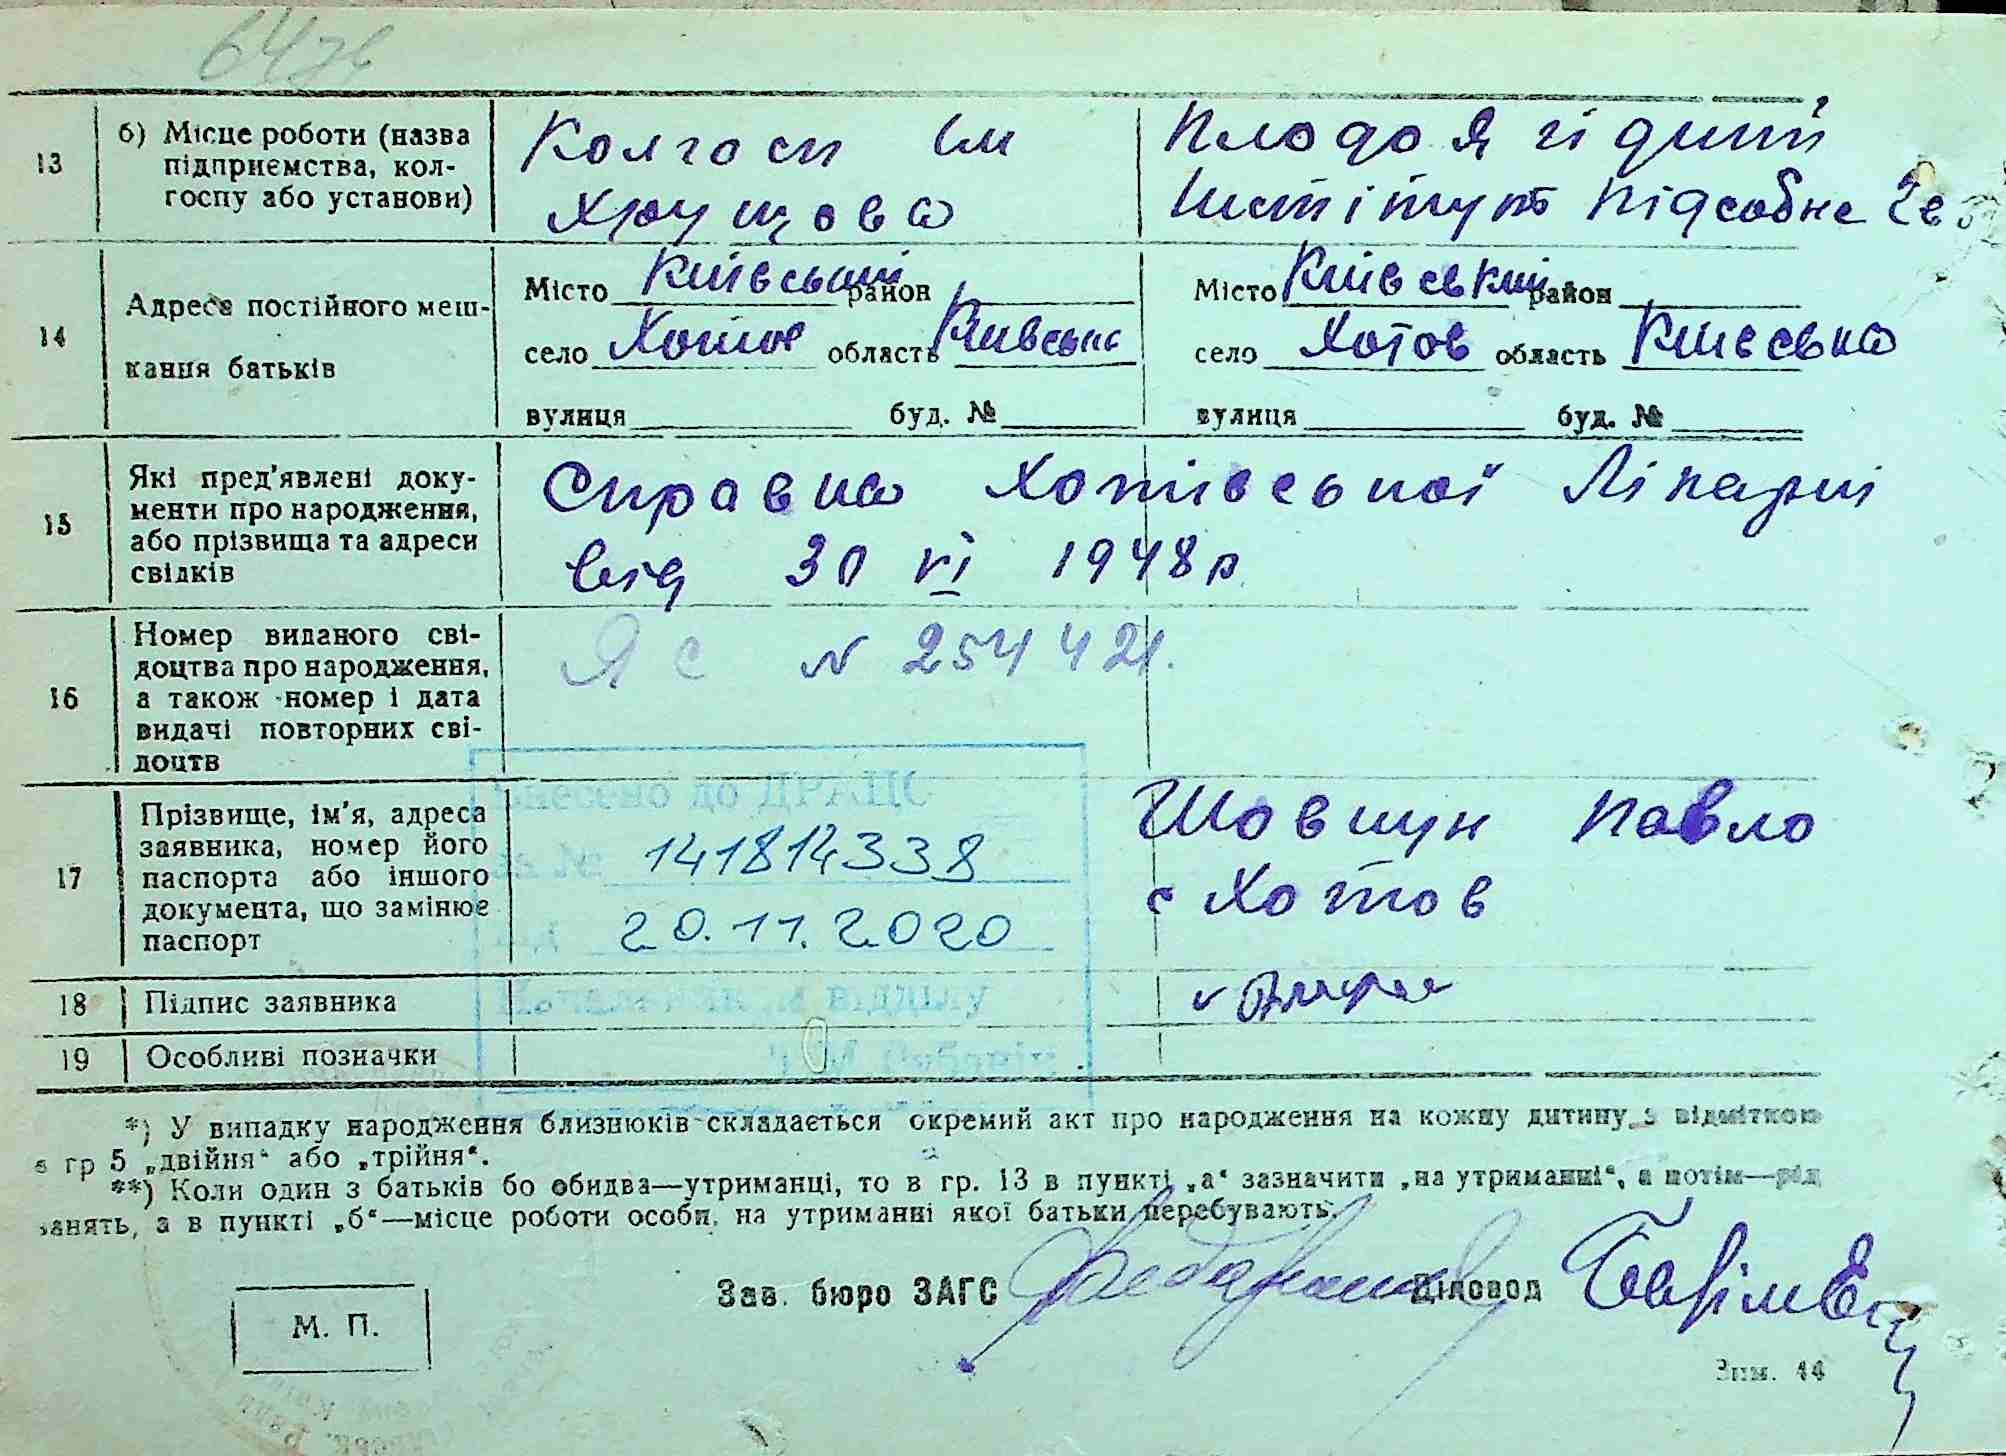 13
б) Місце роботи (назва
підприємства, кол-
госпу або установи)
Колгосп ім
Хрущова
Плодоягідний
Інстітут підсобне
14
Адреса постійного меш-
кання батьків
Місто Київський район
село Хотов область Київська
вулиця буд. №
Місто Київський район
село Хотов область Київська
вулиця буд. №
15
Які пред'явлені доку-
менти про народження,
або прізвища та адреси
свідків
Справка Хотівської Лікарні
від 30 VI 1948 р
16
Номер виданого сві-
доцтва про народження,
а також номер і дата
видачі повторних сві-
доцтв
ЯС № 254421.
17
Прізвище, ім'я, адреса
заявника, номер його
паспорта або іншого
документа, що замінює
паспорт
Внесено до ДРАЦС
за № 141814338
від 20.11.2020
Начальник відділу
Шовкун Павло
с Хотов
18
Підпис заявника
19
Особливі позначки
*) У випадку народження близнюків складається окремий акт про народження на кожну дитину з відміткою
в гр 5 „двійня“ або „трійня“.
**) Коли один з батьків бо обидва—утриманці, то в гр. 13 в пункті „а“ зазначити „на утриманні“, а потім—рід
занять, а в пункті „б“—місце роботи особи, на утриманні якої батьки перебувають.
Зав. бюро ЗАГС
Діловод
М. П.
Зам. 44